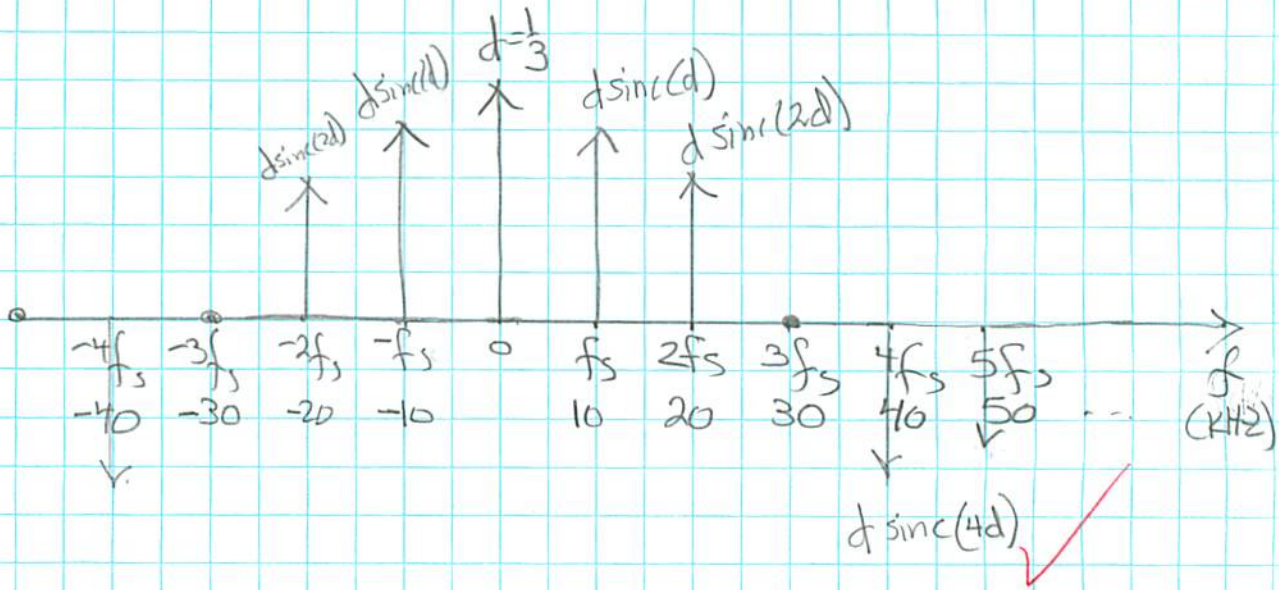 d=1/3
dsinc(d) dsinc(d)
dsinc(2d) dsinc(2d)
-4fs -3fs -2fs -fs 0 fs 2fs 3fs 4fs 5fs f
-40 -30 -20 -10 10 20 30 40 50 ... (KHz)
dsinc(4d)